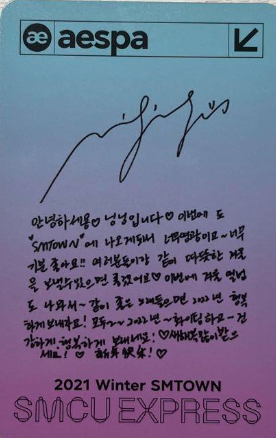 æ aespa
안녕하세요♡ 닝닝입니다♡ 이번에 도
"SMTOWN"에 나오게되서 너무영광이고~너무
기분 좋아요!! 여러분들이랑 같이 따뜻한 겨울
을 보낼수있으면 좋겠어요♡ 이번에 겨울 앨범
도 나와서~ 같이 좋은 노래들으면 2022년 행복
하게 보내자요! 모두~~ 2022년 ~화이팅하고~건
강하게 행복하게 보내세요! ♡새해복많이받으
세요! ♡ 新年快乐! ♡
2021 Winter SMTOWN
SMCU EXPRESS